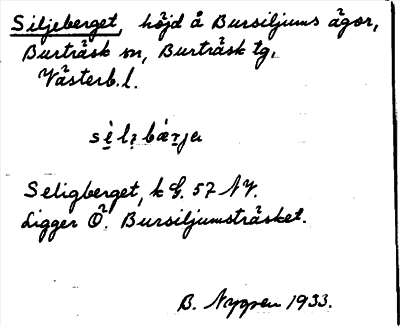 Siljeberget, höjd å Bursiljums ägor,
Burträsk sn, Burträsk tg,
Västerb. l.
Seligberget, k G. 57 NV.
Ligger Ö. Bursiljumsträsket.
B. Nygren 1933.